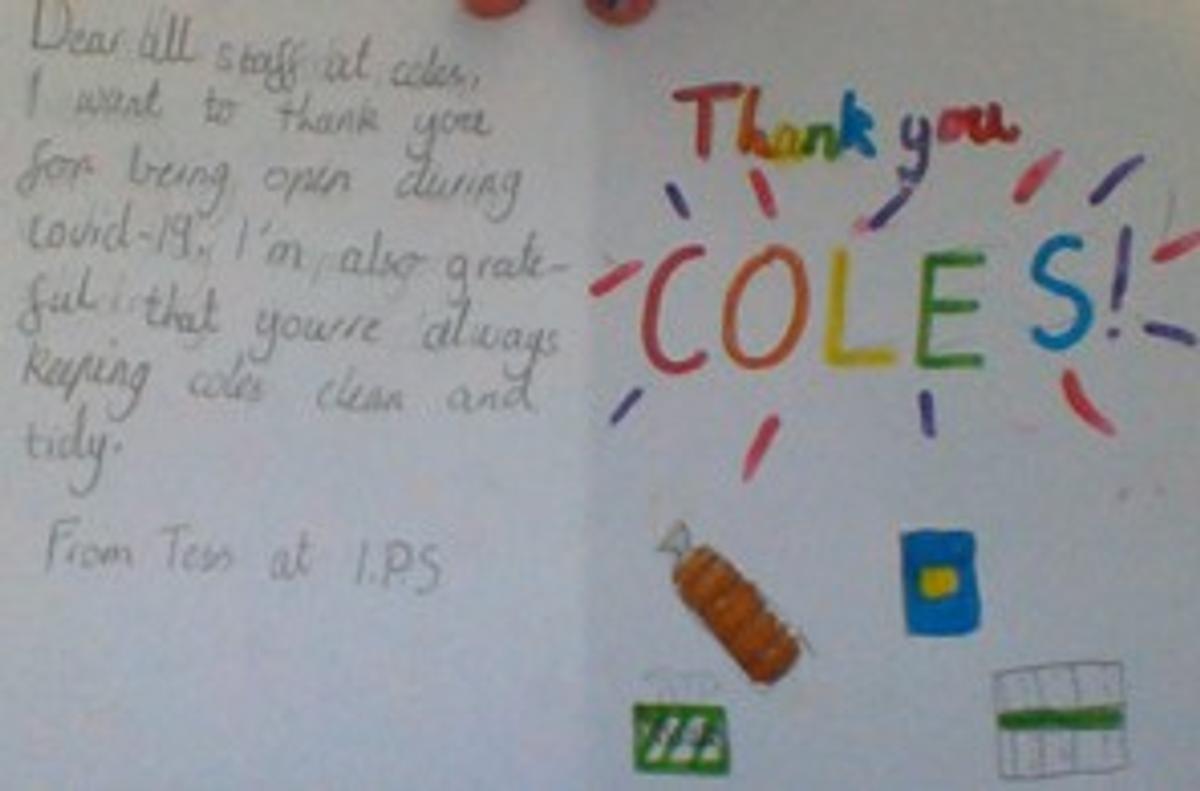 Dear all staff at coles,
I want to thank you
for being open during
covid-19. I'm also grate-
ful that you're always
keeping coles clean and
tidy.
From Tess at I.P.S
Thank you
COLES!